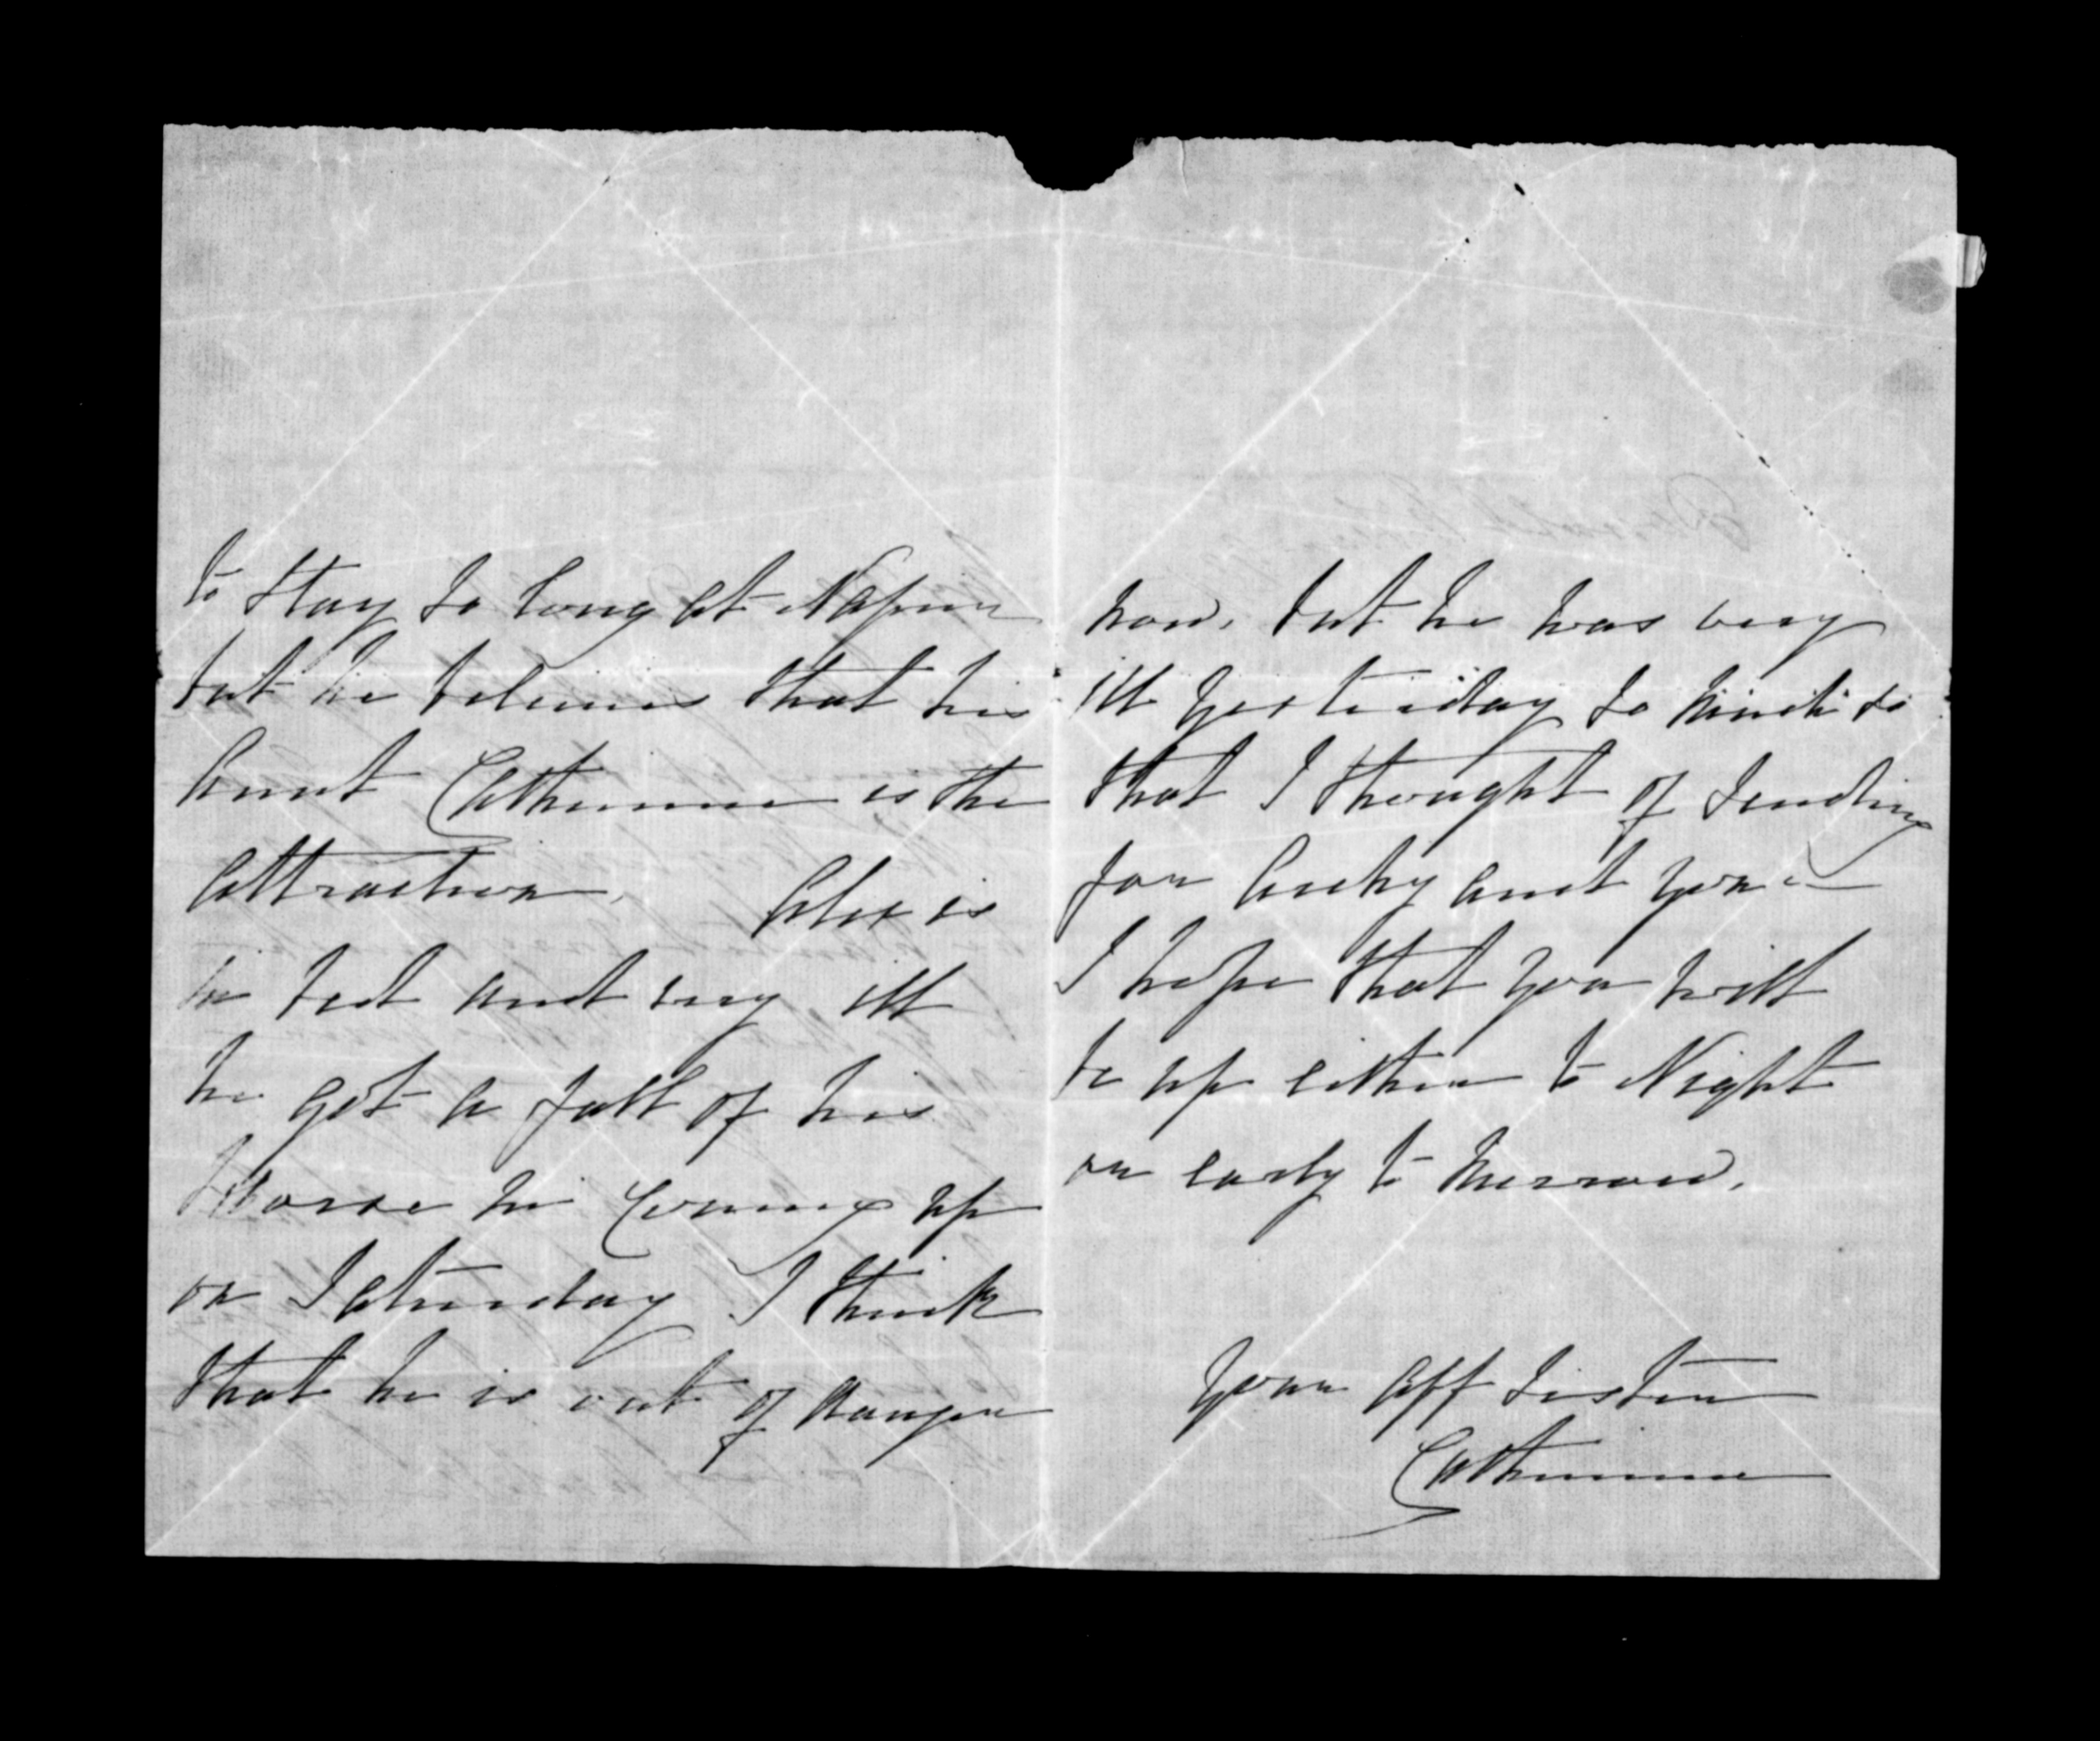 to stay so long at Napier
but he believes that his
Aunt Catherine is the
attraction. Alex is
in bed and very ill
he got a fall of his
Horse in Coming up
on Saturday I think
that he is out of danger
now, but he was very
ill yesterday so much so
that I thought of sending
for Archy and you —
I hope that you will
be up either to Night
or early to morrow.
Your Aff Sister
Catherine